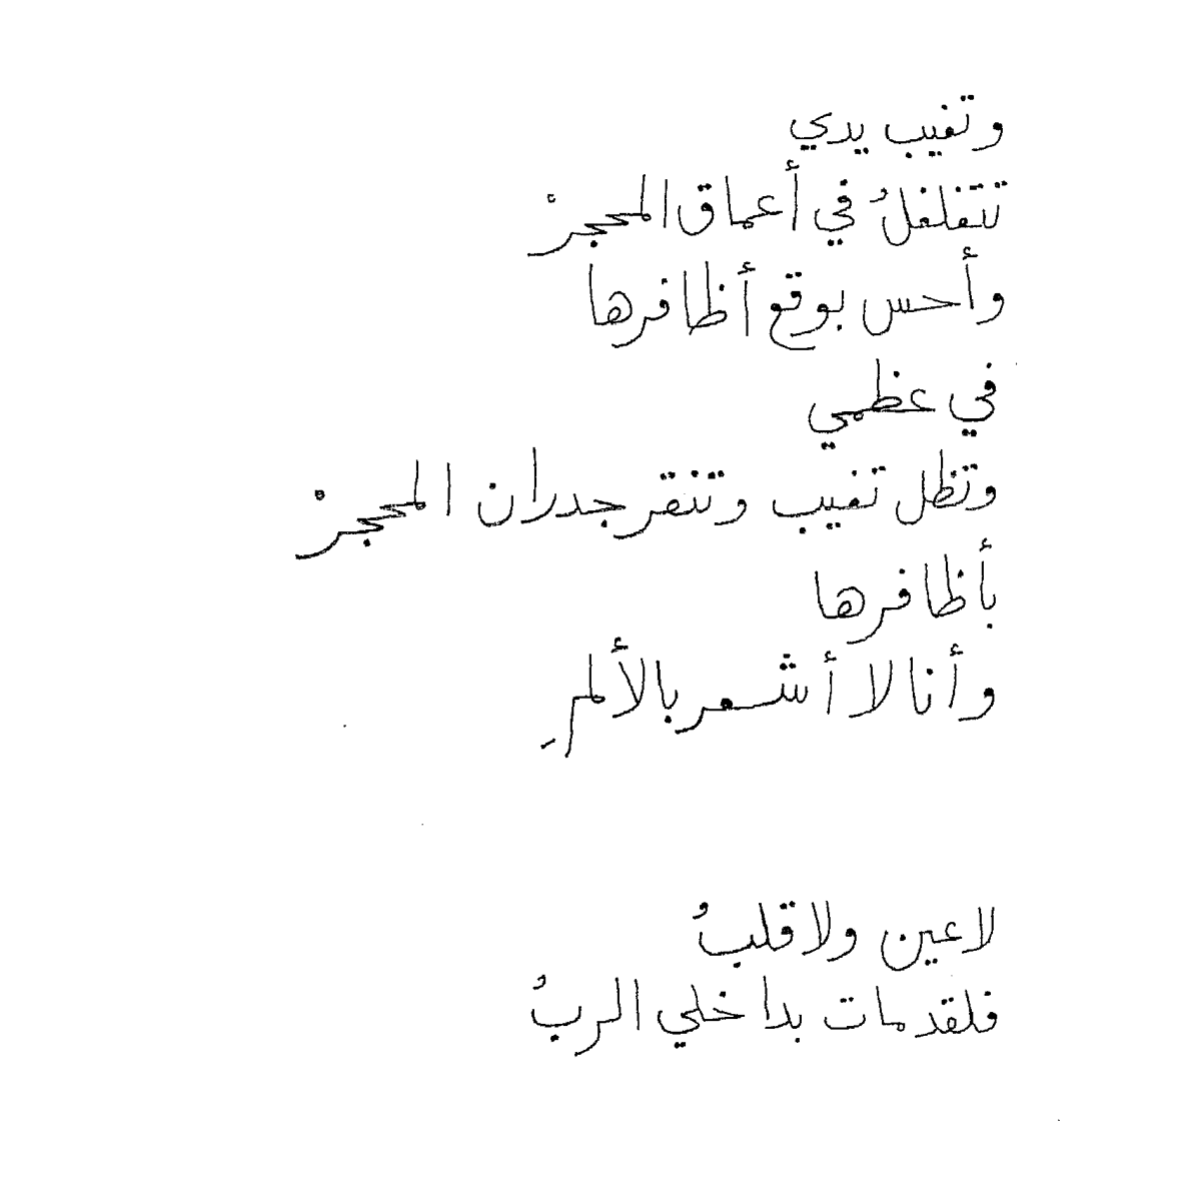 وتغيب يدي
تتغلغلُ في أعماق المحجرْ
وأحس بوقع أظافرها
في عظمي
وتظل تغيب وتنقر جدران المحجرْ
بأظافرها
وأنا لا أشعر بالألمِ
لا عين ولا قلبُ
فلقد مات بداخلي الربُ